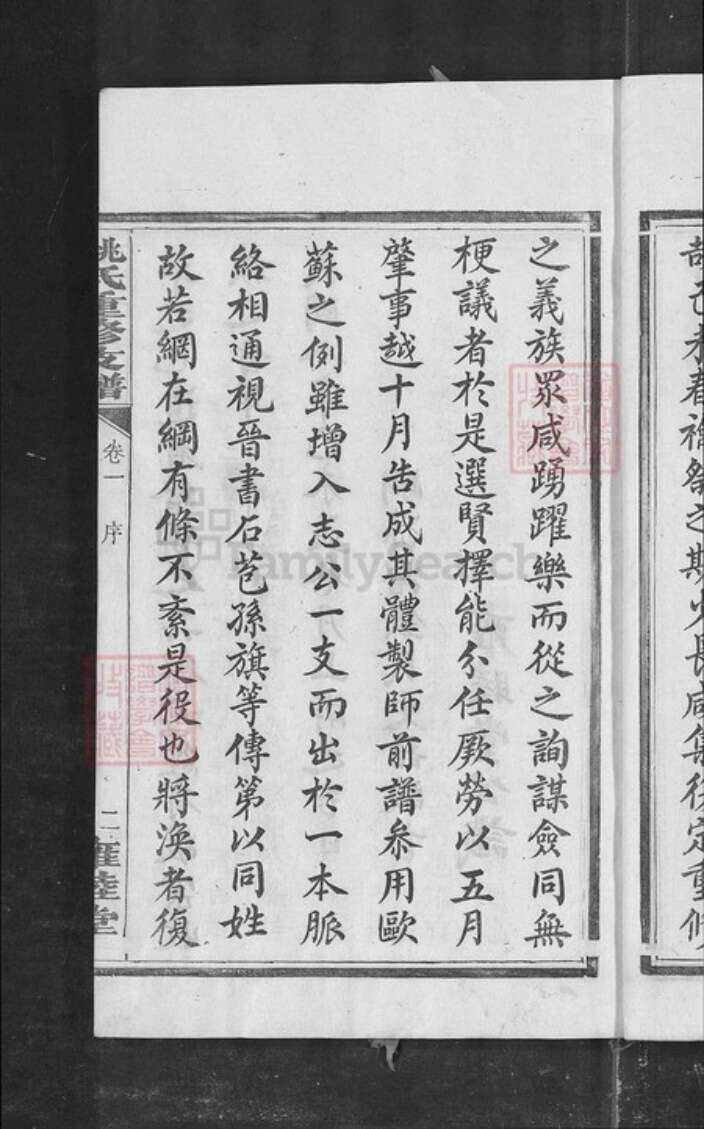 哉己未春禴祭之期少長咸集後定重修
之義族眾咸踴躍樂而從之詢謀僉同無
梗議者於是選賢擇能分任厥勞以五月
肇事越十月告成其體製師前譜參用歐
蘇之例雖增入志公一支而出於一本脈
絡相通視晉書石苞孫旗等傳第以同姓
故若網在綱有條不紊是役也將渙者復
姚氏重修支譜
卷一 序
二
雍睦堂
FamilySearch